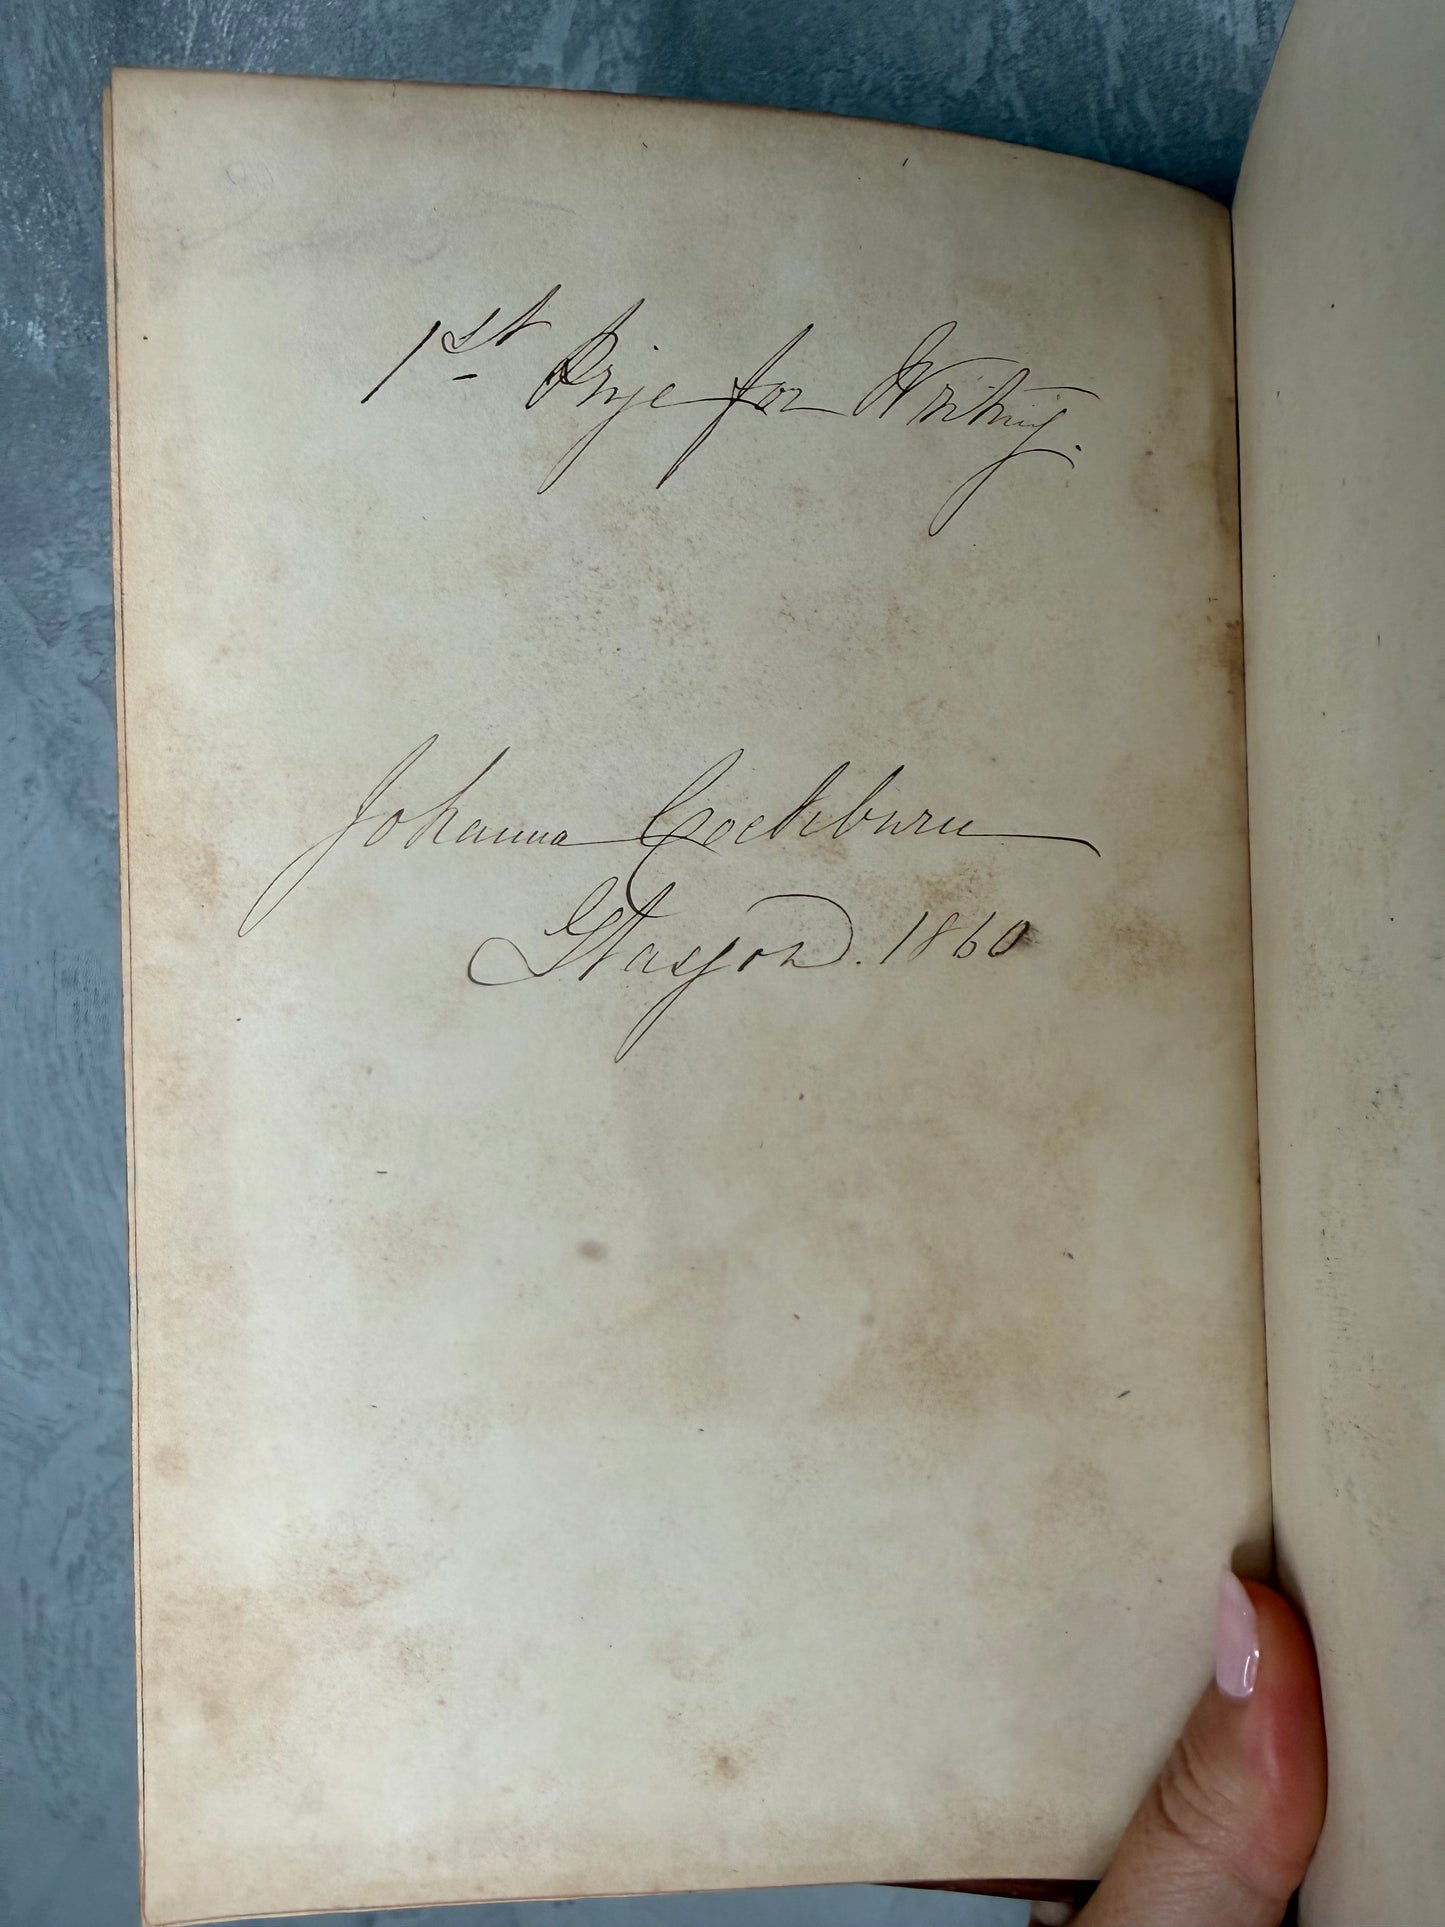 1st Prize for Writing.
Johanna Cockburn
Glasgow. 1860